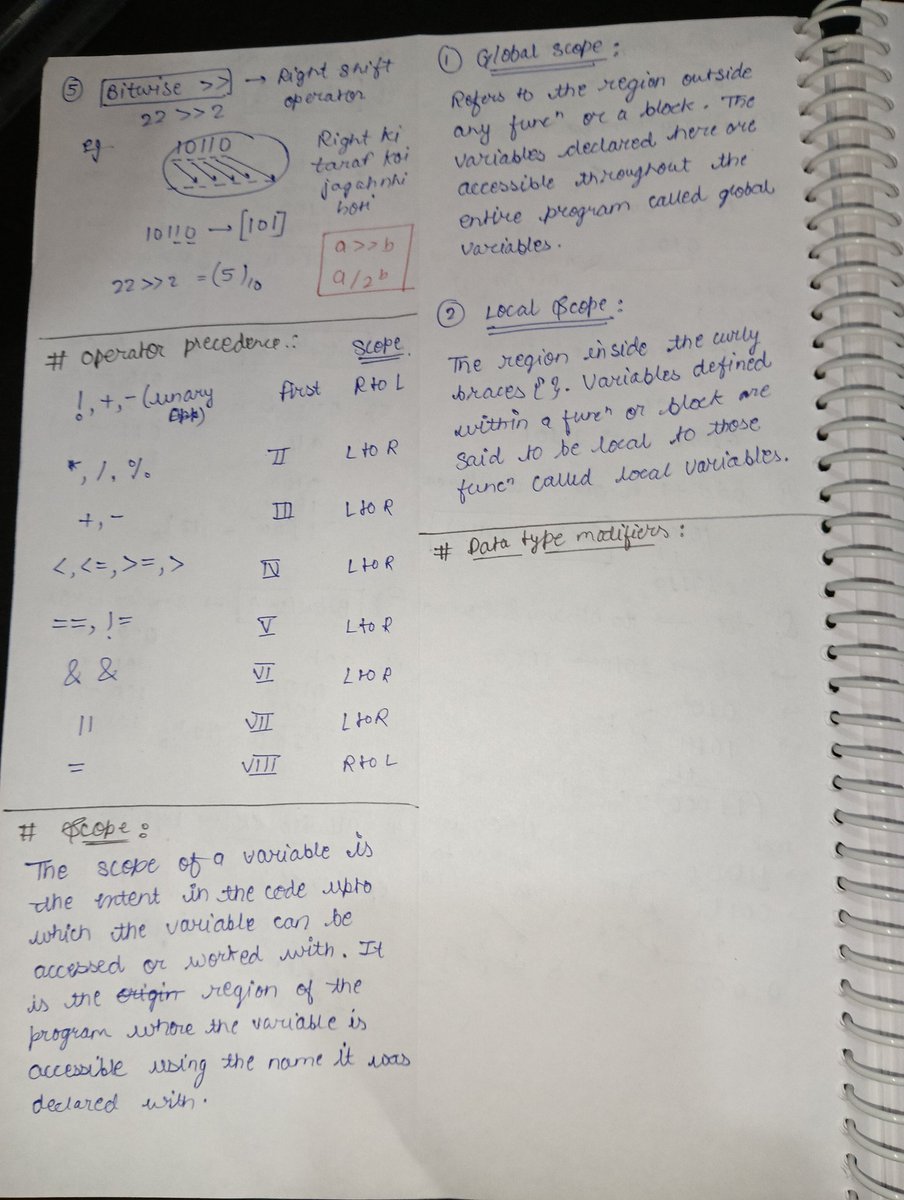 ⑤ Bitwise >> → Right shift
operator
22 >> 2
Eg
10110
Right ki
taraf koi
jagah nhi
hoti
10110 → [101]
a >> b
a/2ᵇ
22 >> 2 = (5)₁₀
# Operator precedence.: Scope.
!, +, - (unary first R to L
*, /, % II L to R
+, - III L to R
<, <=, >=, > IV L to R
==, != V L to R
& & VI L to R
|| VII L to R
= VIII R to L
# Scope:
The scope of a variable is
the extent in the code upto
which the variable can be
accessed or worked with. It
is the origin region of the
program where the variable is
accessible using the name it was
declared with.
① Global scope:
Refers to the region outside
any funcⁿ or a block. The
variables declared here are
accessible throughout the
entire program called global
variables.
② Local Scope:
The region inside the curly
braces { }. Variables defined
within a funcⁿ or block are
said to be local to those
funcⁿ called local variables.
# Data type modifiers: